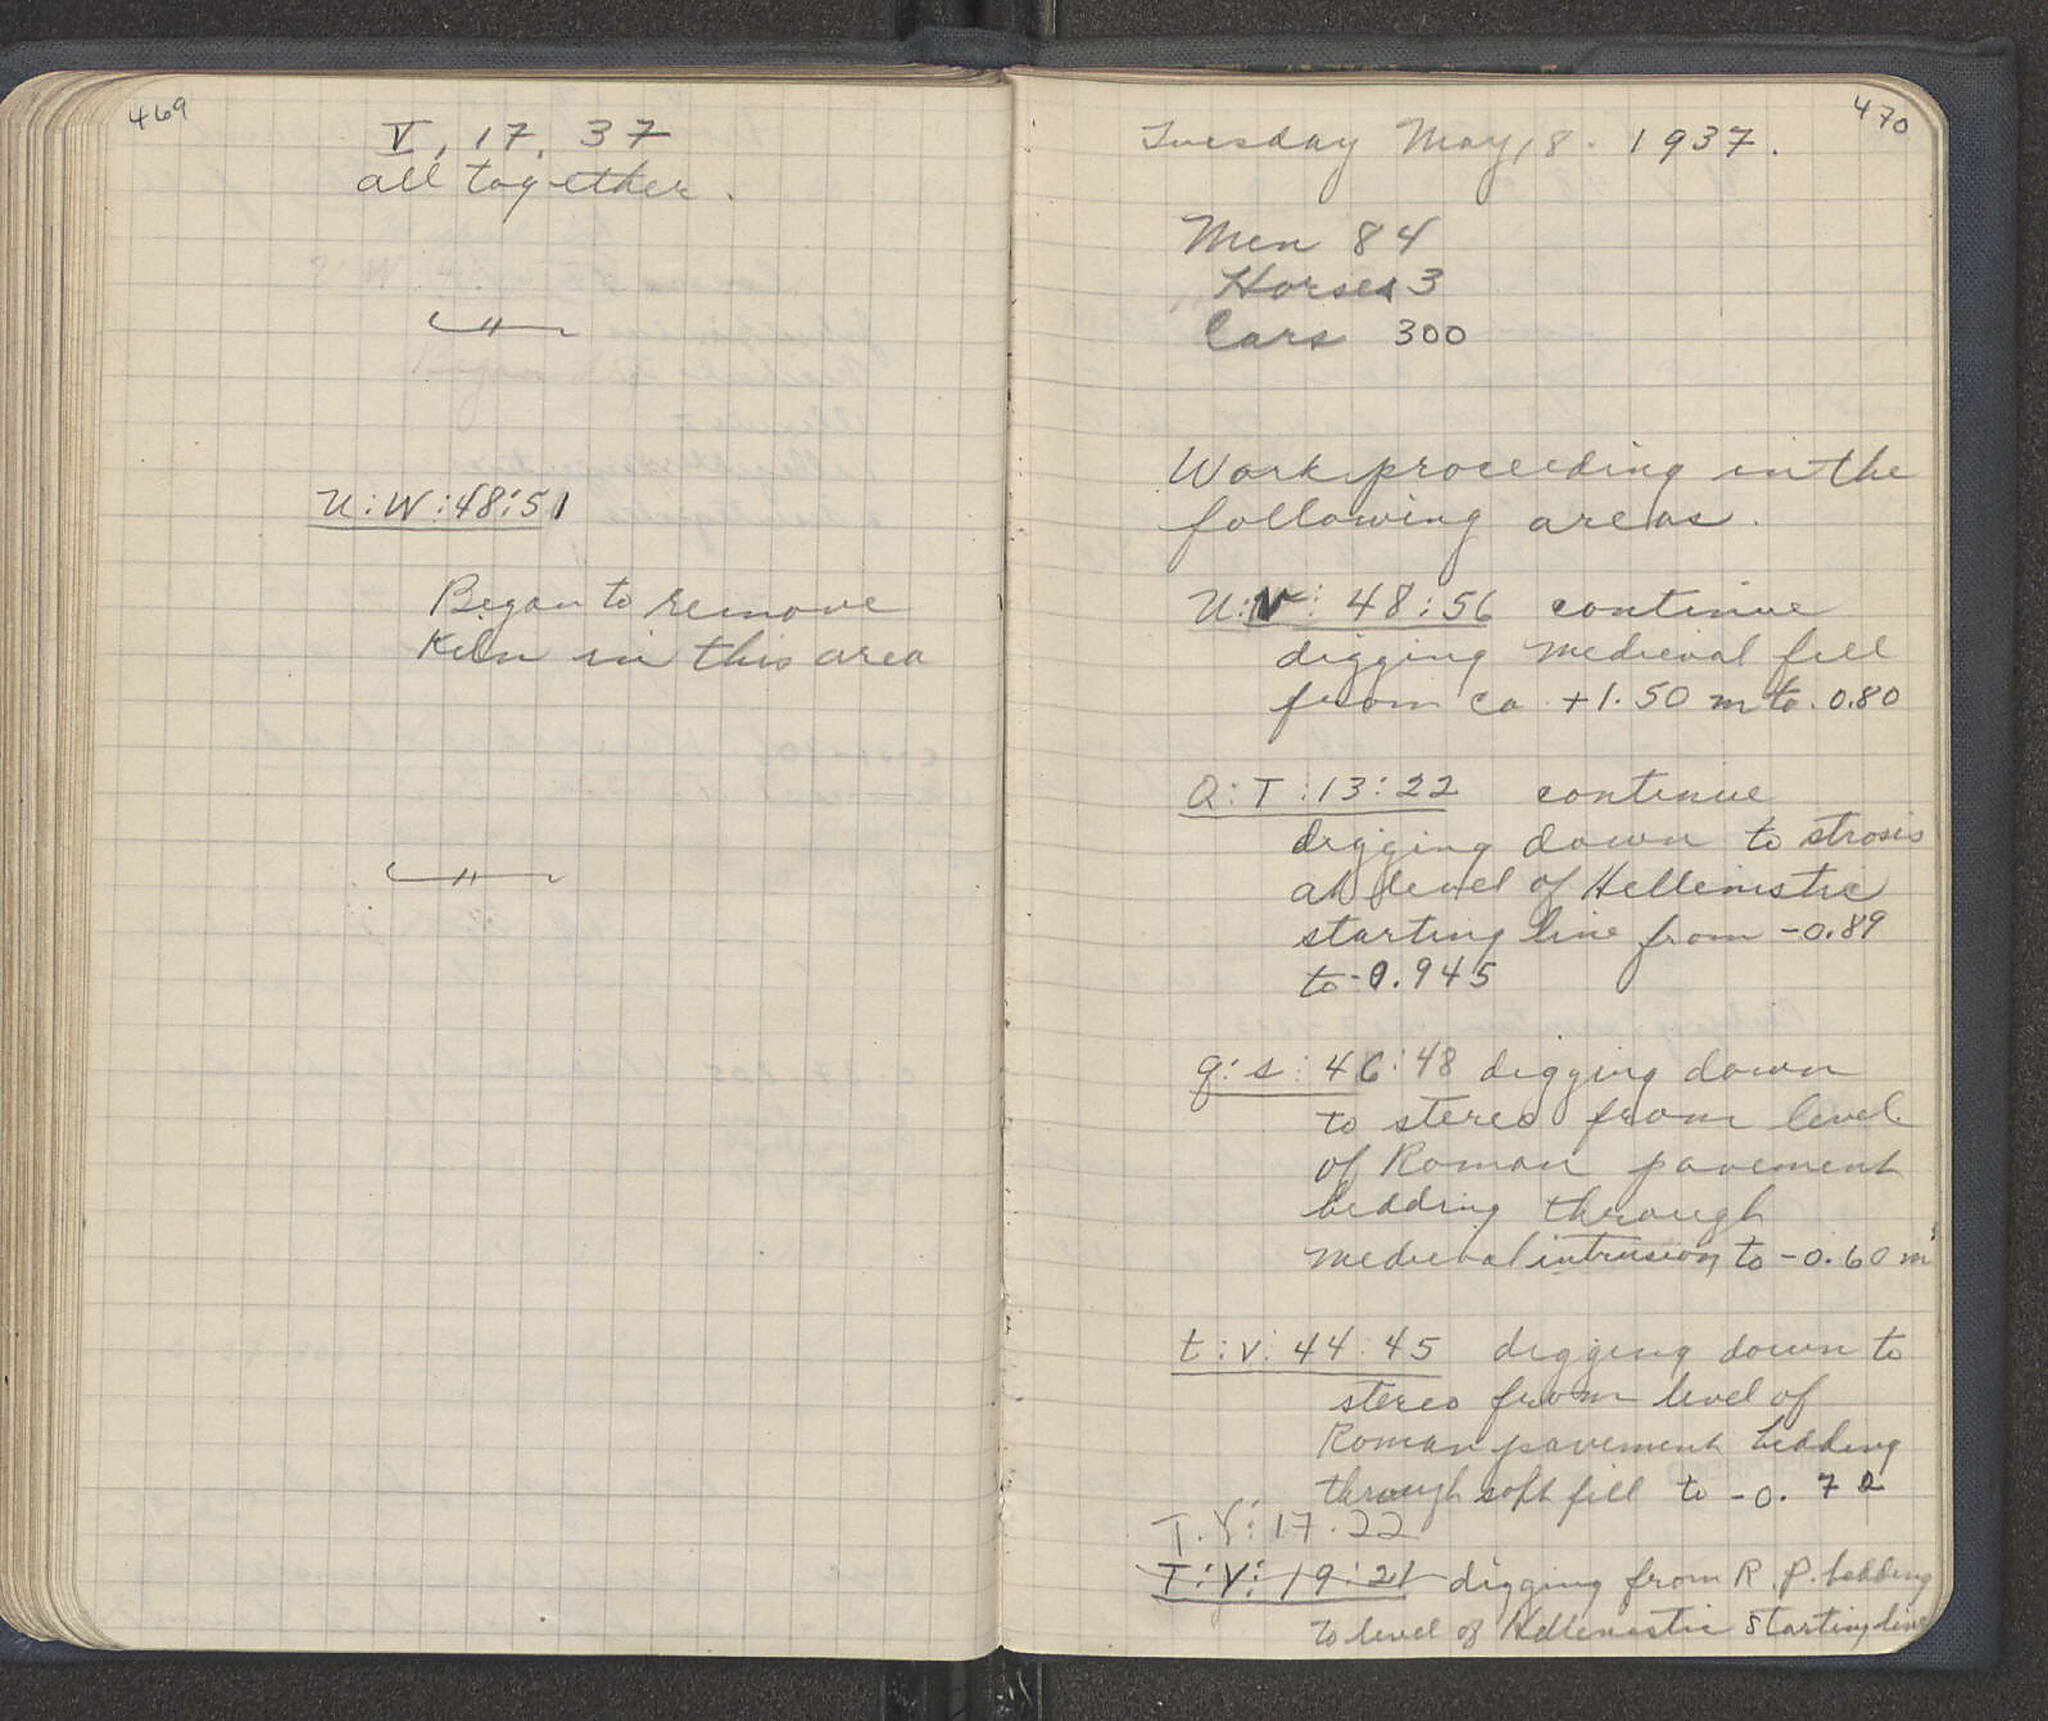 469
V, 17, 37
all together.
U:W:48:51
Began to remove
Kiln in this area
470
Tuesday May 18. 1937.
Men 84
Horses 3
Cars 300
Work proceeding in the
following areas.
U:V: 48:56 continue
digging medieval fill
from ca +1.50 m to 0.80
Q:T:13:22 continue
digging down to strosis
at level of Hellenistic
starting line from -0.89
to -0.945
q:s: 46:48 digging down
to stereo from level
of Roman pavement
bedding through
medieval intrusion to -0.60 m
t:v: 44.45 digging down to
stereo from level of
Roman pavement bedding
through soft fill to -0.72
T.V: 17.22
T:V: 19:21 digging from R.P. bedding
to level of Hellenistic starting line